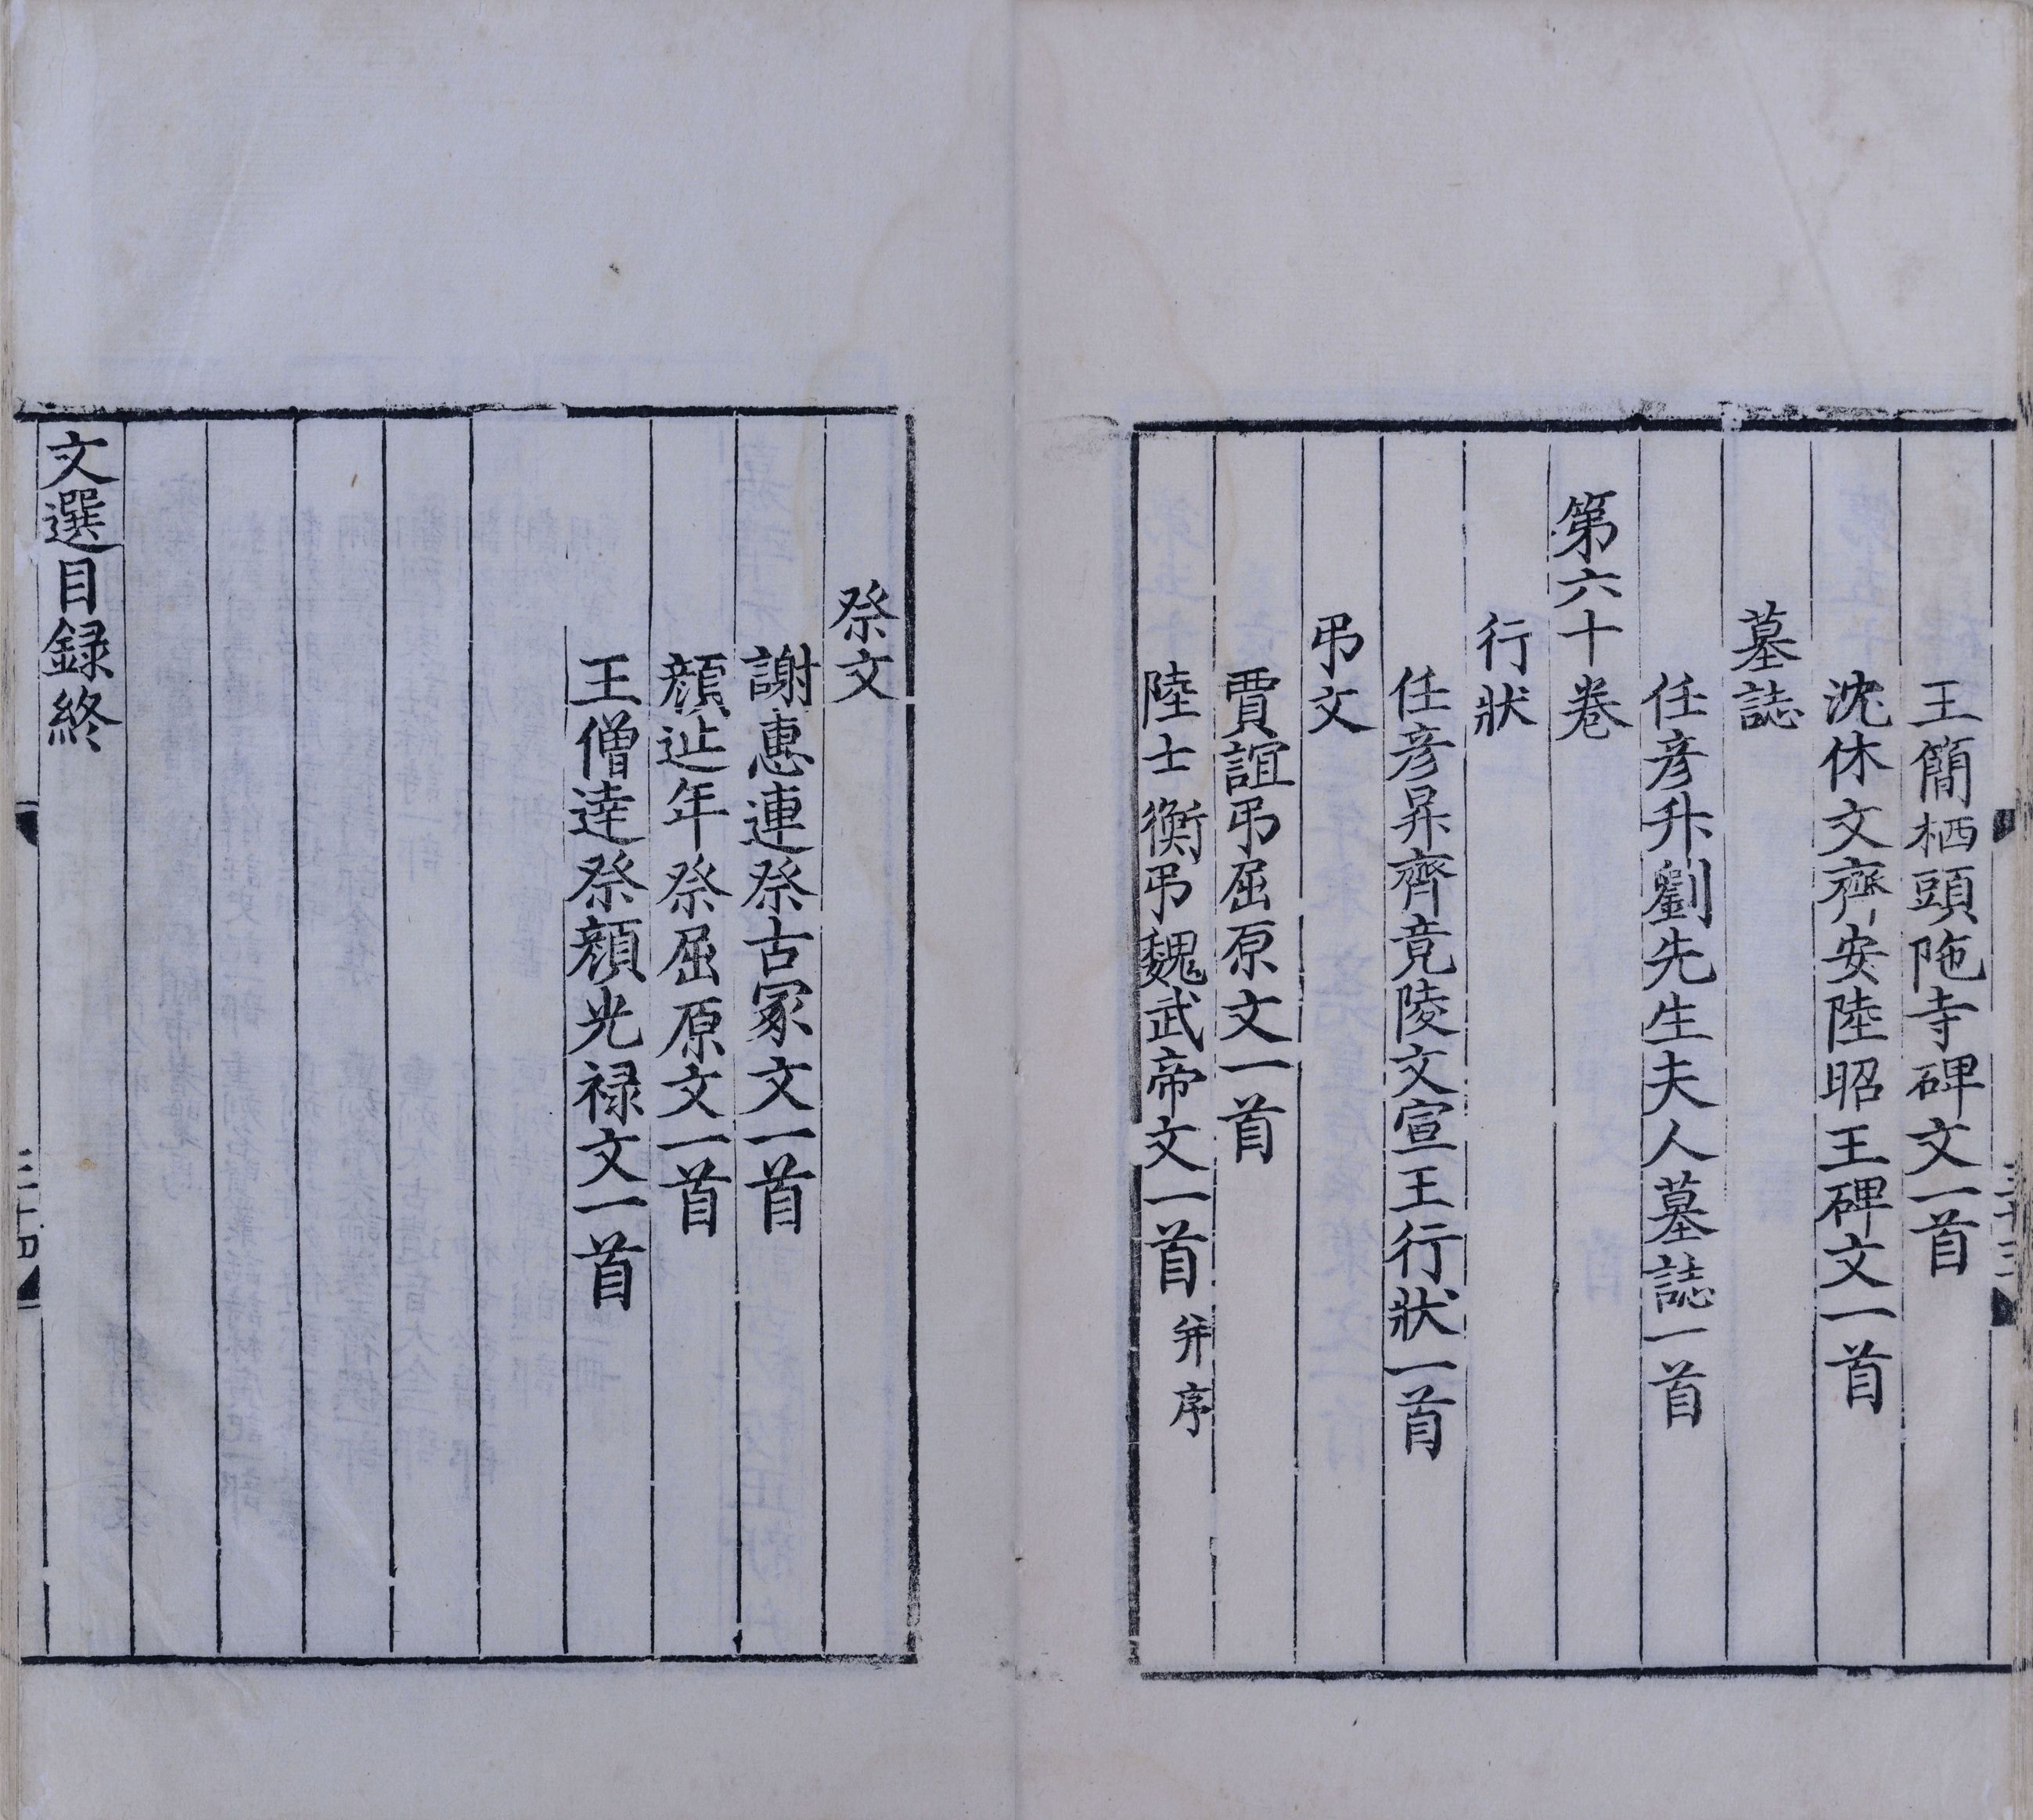 王簡栖頭陁寺碑文一首
沈休文齊安陸昭王碑文一首
墓誌
任彦升劉先生夫人墓誌一首
第六十卷
行狀
任彦昇齊竟陵文宣王行狀一首
弔文
賈誼弔屈原文一首
陸士衡弔魏武帝文一首并序
祭文
謝惠連祭古冢文一首
顔延年祭屈原文一首
王僧達祭顔光禄文一首
文選目録終